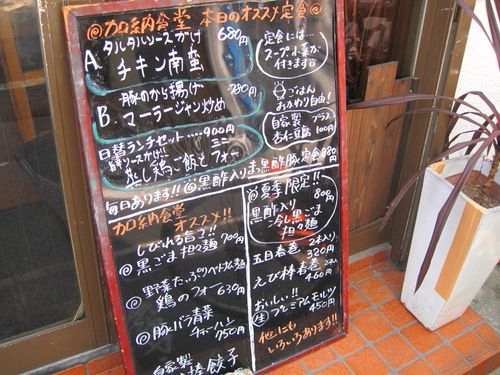 @加納食堂 本日のオススメ定食@
A タルタルソースかけ 680円
チキン南蛮
豚のから揚げ 780円
B. マーラージャン炒め
定食には…
スープ小菜が
付きます☺
ごはん
おかわり自由!
自家製 プラス
杏仁豆腐 100円
日替ランチセット……900円
蒸し鶏ご飯と ミニフォー
毎日あります!! @黒酢入りまっ黒酢豚定食 880円
加納食堂 オススメ!!
しびれる旨さ!!
@黒ごま担々麺 700円
@野菜たっぷりベトナム麺
鶏のフォー 630円
@豚バラ青菜
チャーハン 750円
自家製
棒餃子
@夏季限定!!
800円
黒酢入り
冷し黒ごま
担々麺
五目春巻 2本入り
320円
えび棒春巻 2本
460円
おいしい!!
生 プレミアムモルツ
450円
他にも
いろいろあります!!